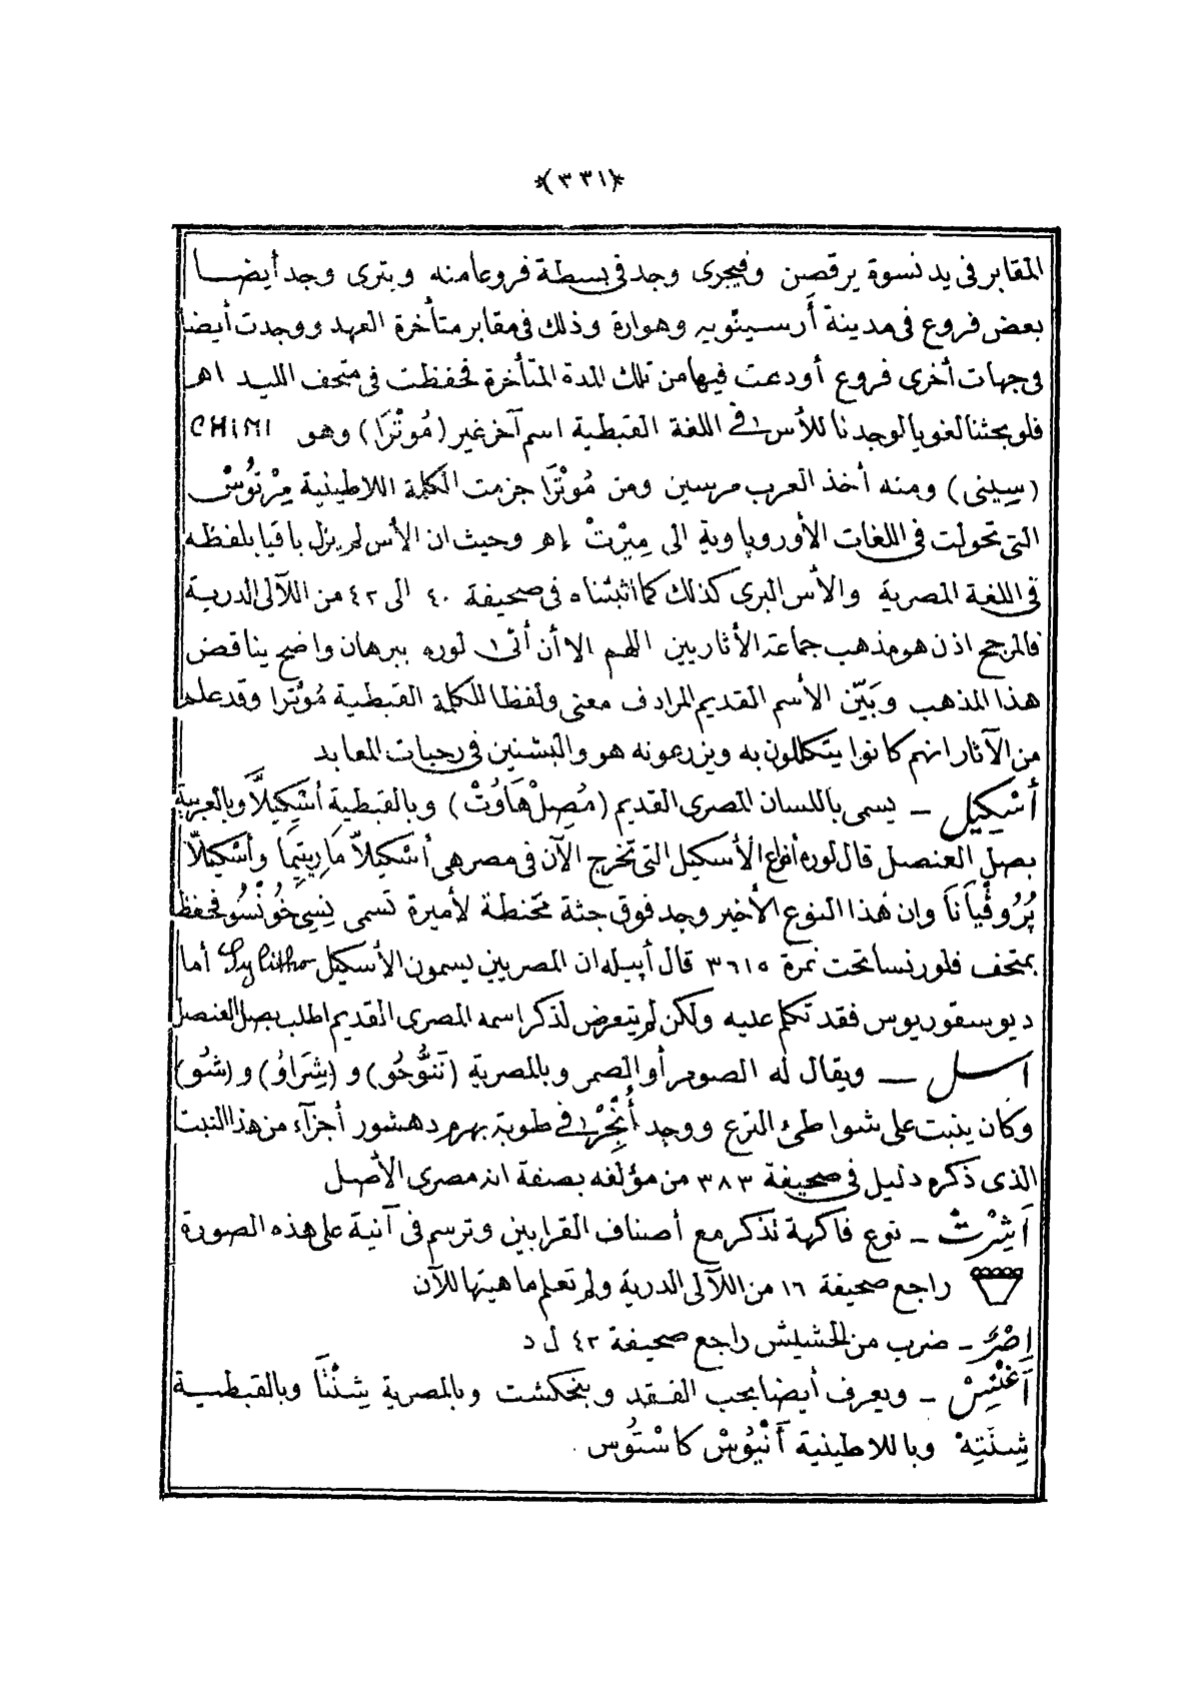 *(٣٣١)*
المقابر فى يد نسوة يرقصن وفيجرى وجد فى بسطة فروعا منه وبترى وجد أيضا
بعض فروع فى مدينة أرسينويه وهوارة وذلك فى مقابر متأخرة العهد ووجدت أيضا
فى جهات أخرى فروع أودعت فيها من تلك المدة المتأخرة فحفظت فى متحف الليد اهـ
فلو بحثنا لغويا لوجدنا للأس فى اللغة القبطية اسم آخر غير (مُوتْرَا) وهو CHIMI
(سِينى) ومنه أخذ العرب مرسين ومن مُوتْرَا جزمت الكلمة اللاطينية مِرْتُوسْ
التى تحولت فى اللغات الأوروپاوية الى مِيْرْتْ إهـ وحيث ان الأس لم يزل باقيا بلفظه
فى اللغة المصرية والأس البرى كذلك كما اثبتناه فى صحيفة ٤٠ الى ٤٢ من اللآلى الدرية
فالمرجح اذن هو مذهب جماعة الأثاريين اللهم الا أن أتى لوره ببرهان واضح يناقض
هذا المذهب وبَيّن الأسم القديم المرادف معنى ولفظا للكلمة القبطية مُوتْرا وقد علم
من الآثار انهم كانوا يتكللون به ويزرعونه هو والبشنين فى رحبات المعابد
أَسْكِيل ـ يسمى باللسان المصرى القديم (مُصِلْ هَاوُتْ) وبالقبطية أَسْكِيلاَّ وبالعربية
بصل العنصل قال لوره أنواع الأسكيل التى تخرج الآن فى مصر هى أَسْكيلاّ مَارِيتِيمَا وأَسْكيلاّ
پُرُوفْيَانَا وان هذا النوع الأخير وجد فوق جثة محنطة لأميرة تسمى نِسِى خُونْسُو فحفظ
بمتحف فلورنسا تحت نمرة ٣٦١٥ قال أپيله ان المصريين يسمون الأسكيل أما
ديوسقوريوس فقد تكلم عليه ولكن لم يتعرض لذكر اسمه المصرى القديم اطلب بصل العنصل
اسل ـ ويقال له الصومر أو الصمر وبالمصرية (نَنُوخُو) و (شِرَاوُ) و (شُو)
وكان ينبت على شواطئ الترع ووجد أُنْجِر فى طوبة بهرم دهشور أجزآء من هذا النبت
الذى ذكره دليل فى صحيفة ٣٨٣ من مؤلفه بصفة انه مصرى الأصل
اَشِرْتْ ـ نوع فاكهة تذكر مع أصناف القرابين وترسم فى آنية على هذه الصورة
راجع صحيفة ١٦ من اللآلى الدرية ولم تعلم ماهيتها للآن
اِصْرَ ـ ضرب من الحشيش راجع صحيفة ٤٢ ل د
اَغْنِسْ ـ ويعرف أيضا بحب الفقد وبنجكشت وبالمصرية شِنْتَا وبالقبطية
شِنَتِهْ وباللاطينية أَنْيُوسْ كاسْتُوس